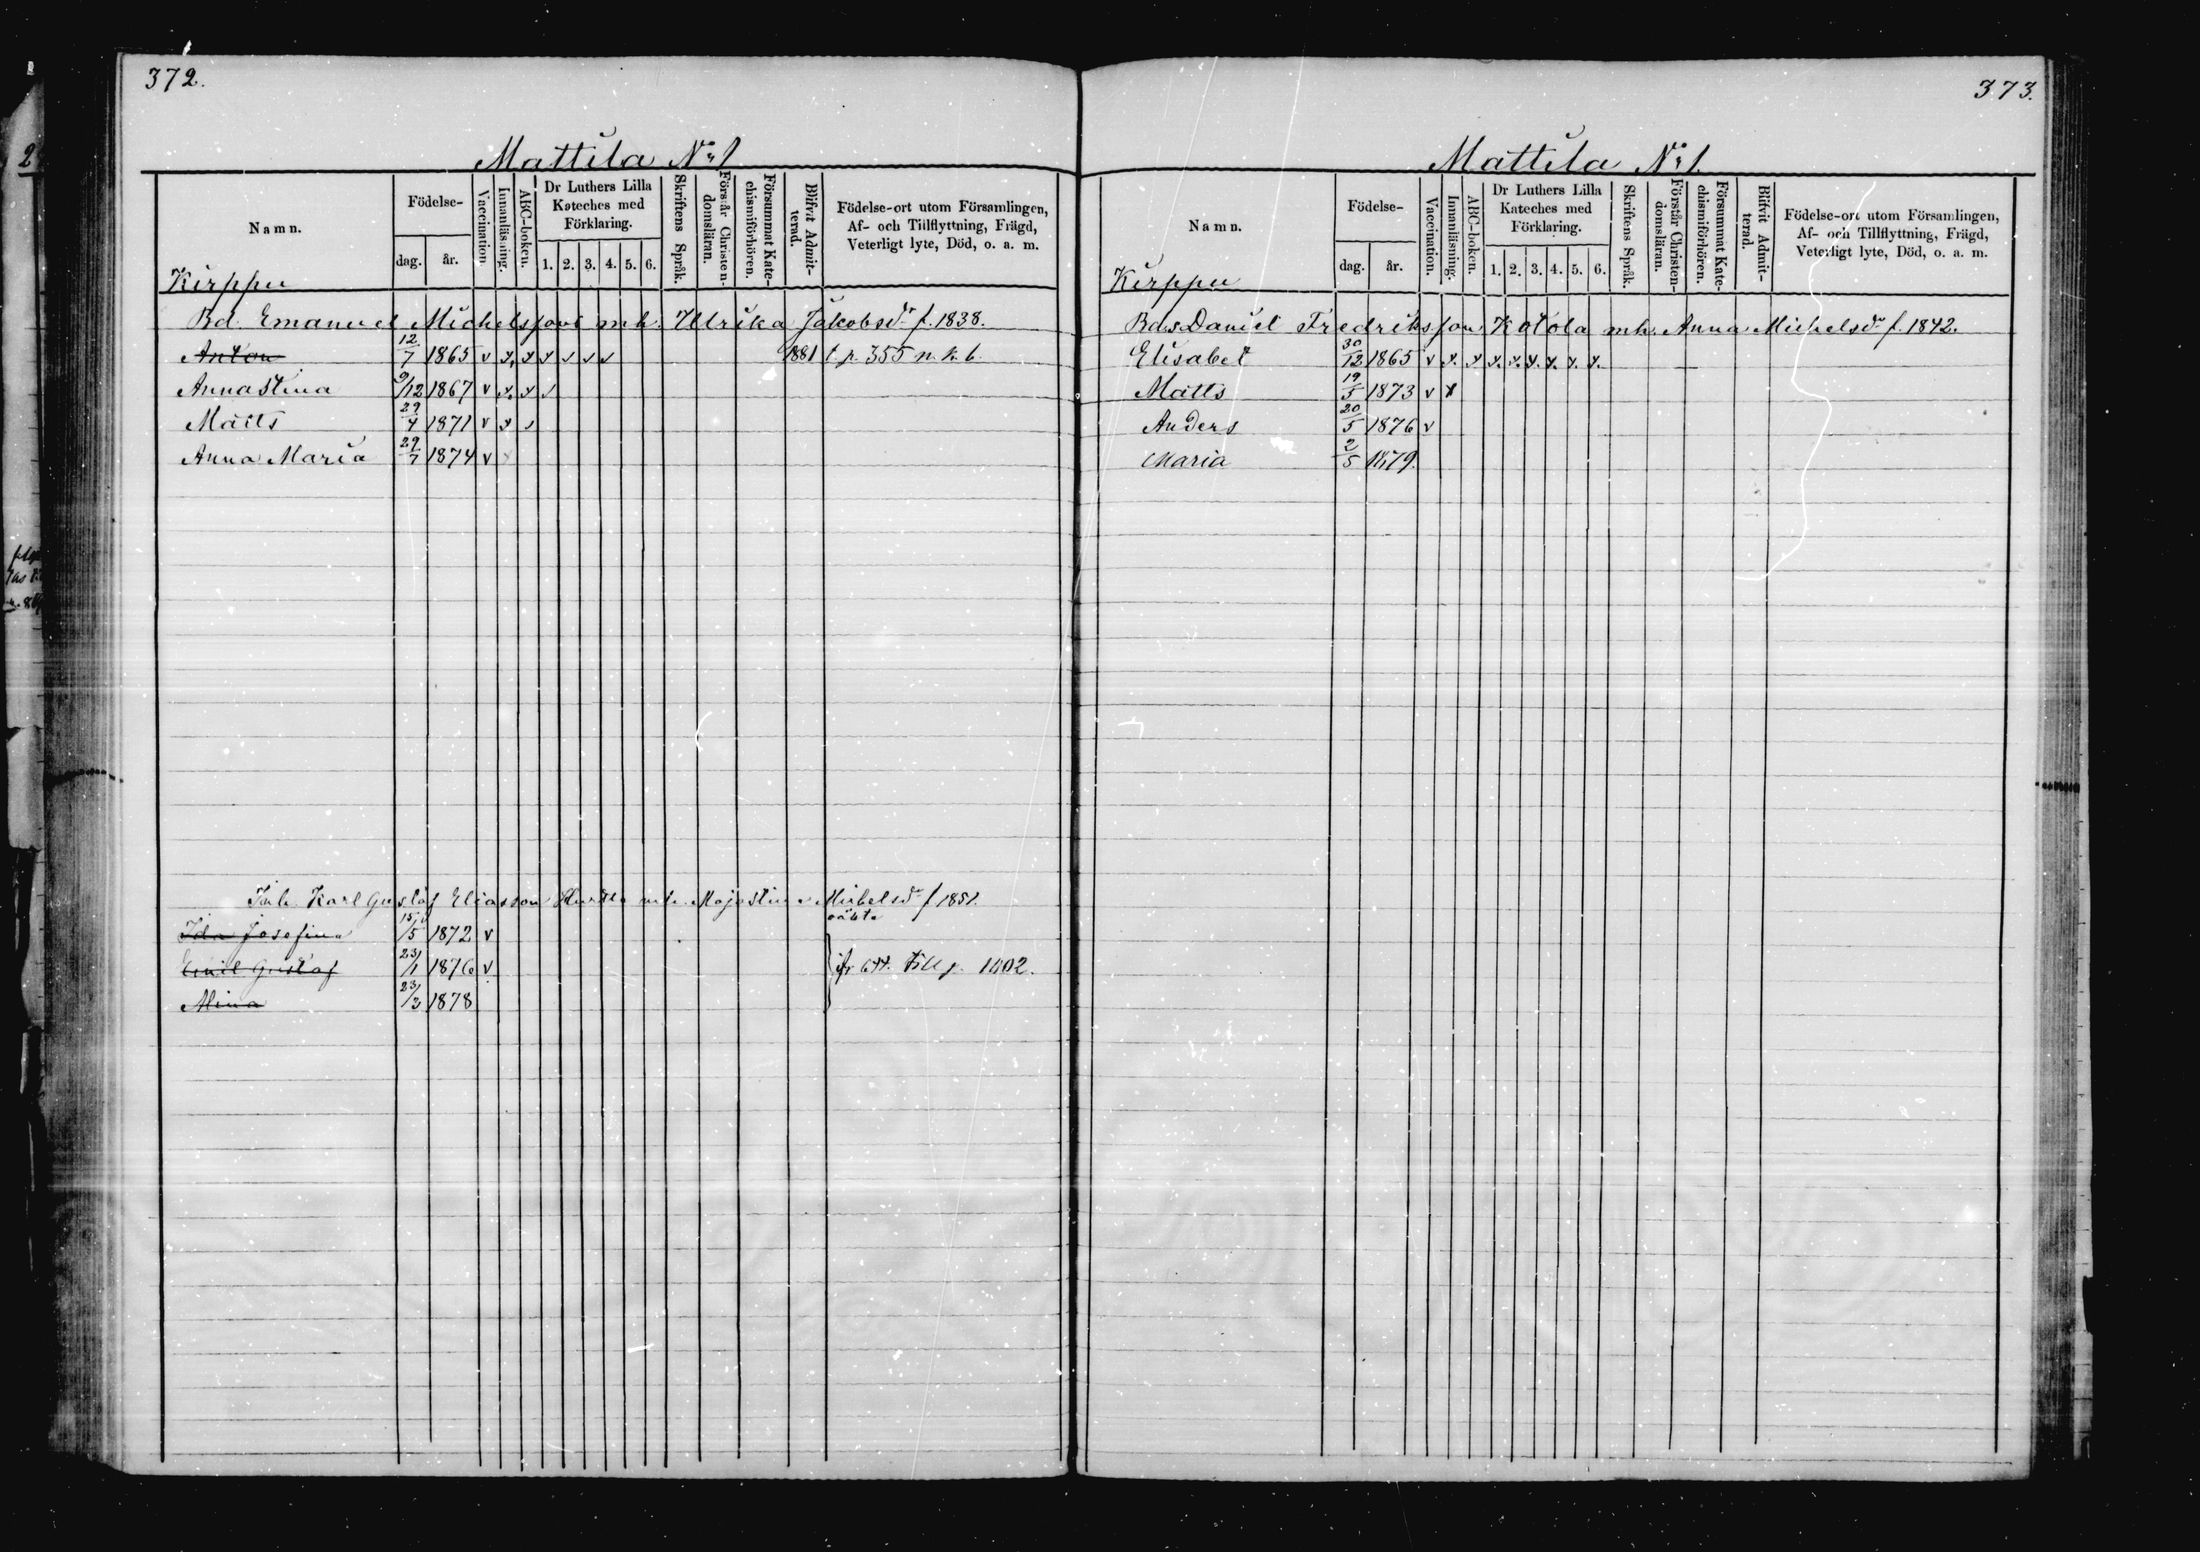 372.
Mattila No 1
Namn.
Födelse-
dag.
år.
Vaccination
Innanläsning.
ABC-boken.
Dr Luthers Lilla
Kateches med
Förklaring.
1. 2. 3. 4. 5. 6.
Skriftens Språk.
Förstår Christen-
domsläran.
Försummat Kate-
chismiförhören.
Blifvit Admit-
terad.
Födelse-ort utom Församlingen,
Af- och Tillflyttning, Frägd,
Veterligt lyte, Död, o. a. m.
Kirppu
Bd. Emanuel Michelsson mh. Ulrika Jakobsdr f. 1838.
Anton 12/7 1865 v x x x v v v 1881 t p. 355 n. k. b.
Annastina 9/12 1867 v x x v
Matts 29/4 1871 v x v
Anna Maria 29/7 1874 v
Inh. Karl Gustaf Eliasson mh. Majastina Michelsdr f 1851.
Ida Josefina 15/5 1872 v
Emil Gustaf 23/1 1876 v till p. 1002.
Mina 23/3 1878
373.
Mattila No 1.
Namn.
Födelse-
dag.
år.
Vaccination.
Innanläsning.
ABC-boken.
Dr Luthers Lilla
Kateches med
Förklaring.
1. 2. 3. 4. 5. 6.
Skriftens Språk.
Förstår Christen-
domsläran.
Försummat Kate-
chismiförhören.
Blifvit Admit-
terad.
Födelse-ort utom Församlingen,
Af- och Tillflyttning, Frägd,
Veterligt lyte, Död, o. a. m.
Kirppu
Bds Daniel Fredriksson Katola mh. Anna Michelsdr f. 1842.
Elisabet 30/12 1865 v x x x x x x x x
Matts 19/5 1873 v x
Anders 20/5 1876 v
Maria 2/5 1879.